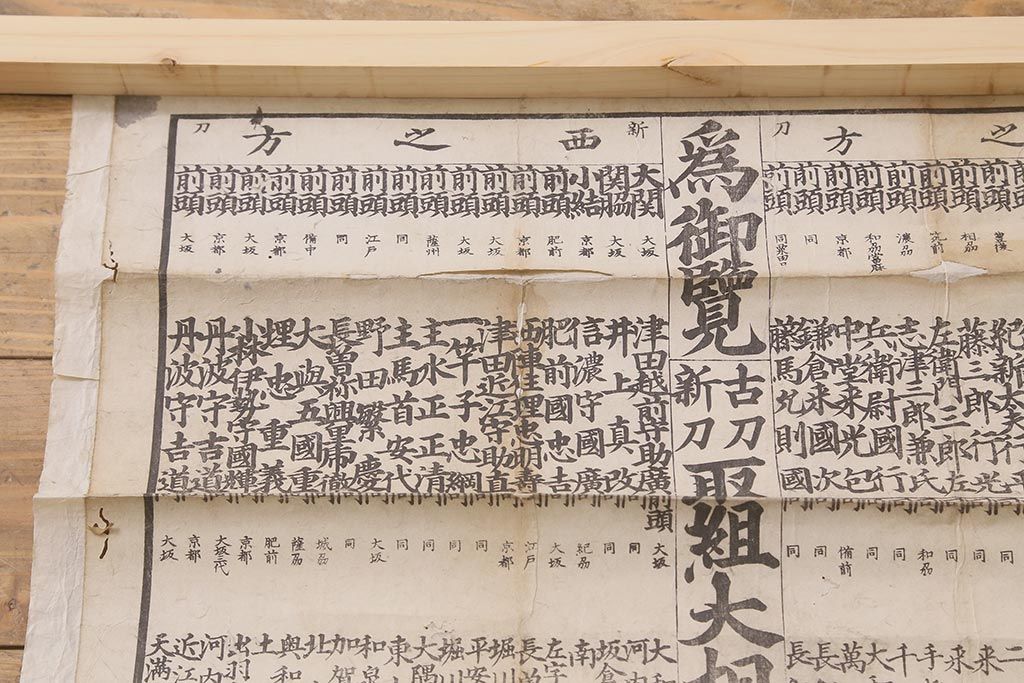 之方
刀
前頭
前頭
前頭
前頭
前頭
前頭
前頭
豊後
相州
筑前
濃州
京都
同
紀新大夫行平
藤三郎行光
左衛門三郎左
志津三郎兼氏
兵衛尉國行
中堂来光包
鎌倉来國次
藤馬允則國
同
同
同
和州
同
同
備前
同
同
為御覧
古刀
新刀
取組大相
新西之方
刀
大関
関脇
小結
前頭
前頭
前頭
前頭
前頭
前頭
前頭
前頭
前頭
前頭
前頭
前頭
前頭
大坂
大坂
京都
肥前
京都
大坂
大坂
薩州
同
江戸
同
備中
京都
大坂
京都
大坂
津田越前守助廣
井上真改
信濃守國廣
肥前國忠吉
西陣住埋忠明壽
津田近江守助直
一竿子忠綱
主水正正清
主馬首安代
野田繁慶
長曽祢興里虎徹
大與五國重
埋忠重義
小林伊勢守國輝
丹波守吉道
丹波守吉道
前頭
大坂
同
同
紀州
大坂
江戸
京都
同
同
同
同
大坂
同
城州
薩州
肥前
京都
大坂三代
京都
大坂
二
来
来
手
千
大
萬
長
長
大和
河内
坂倉
南
左字
長
堀川
平安
堀川
大隅
東
和泉
加賀
北
與和
土
出羽
河内
近江
天満